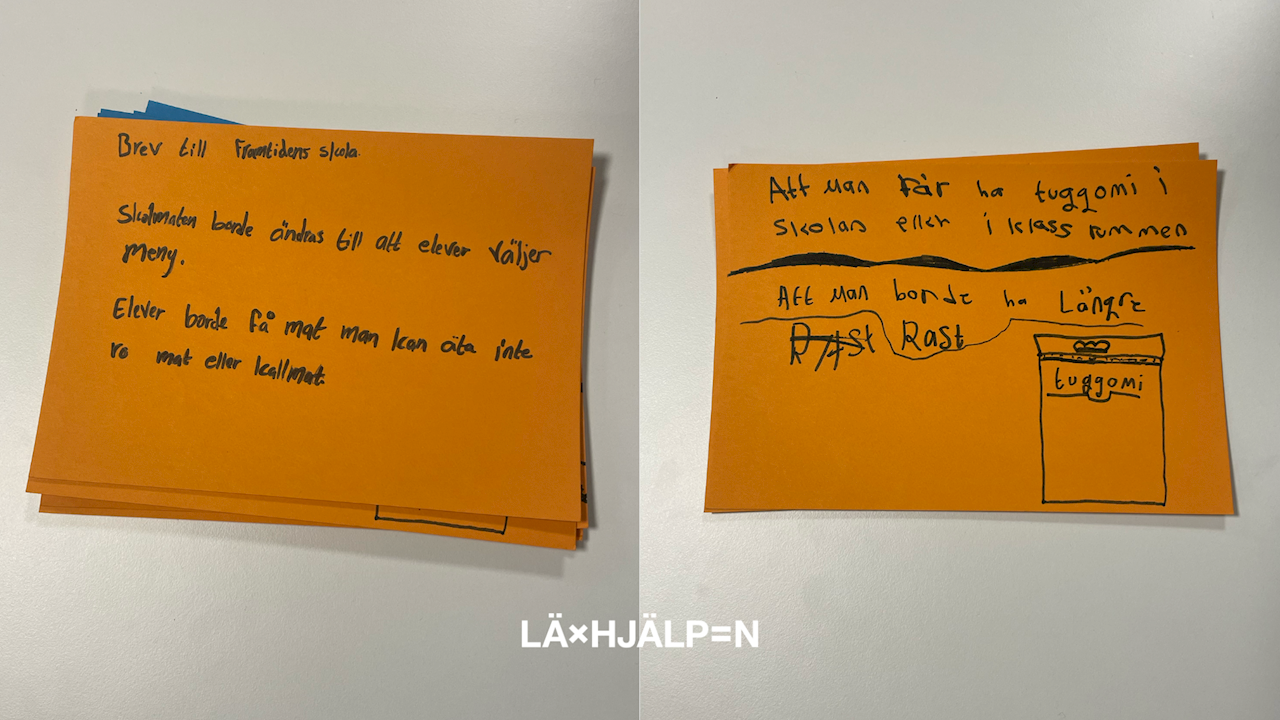 Brev till Framtidens skola.
Skolmaten borde ändras till att elever väljer
meny.
Elever borde få mat man kan äta inte
ro mat eller kallmat.
Att man får ha tuggomi i
skolan eller i klass rummen
Att man borde ha Längre
Rast
tuggomi
LÄ×HJÄLP=N